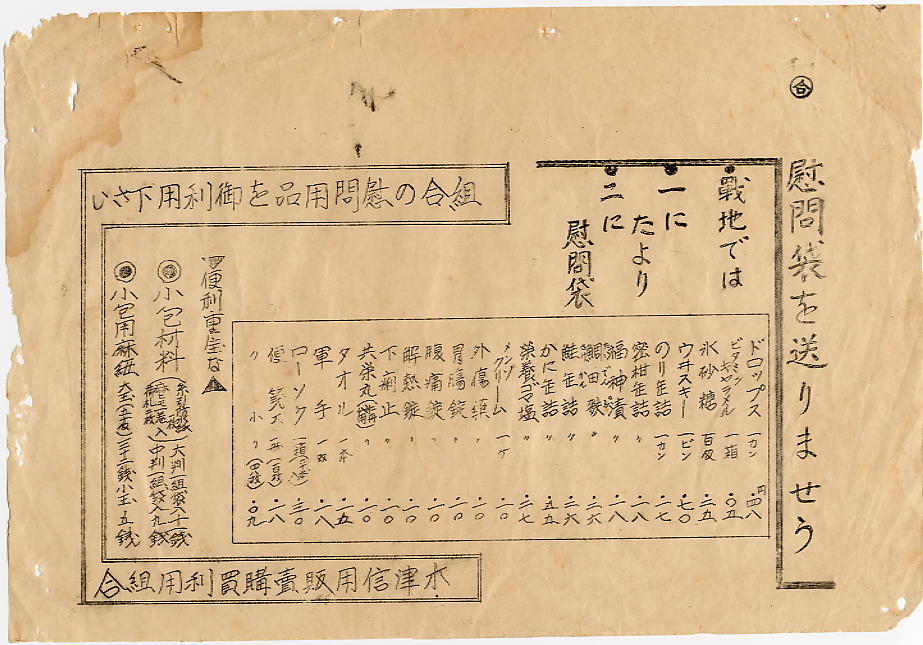 ㊎
慰問袋を送りませう
戰地では
一に
たより
二に
慰問袋
ドロップス 一カン 円・四八
ビタミンキャラメル 一箱 ・〇五
氷砂糖 百匁 ・二五
ウヰスキー 一ビン ・七〇
のり缶詰 一カン ・二七
蜜柑缶詰 〃 ・一八
福神漬 〃 ・一八
鯛田麩 〃 ・二六
鮭缶詰 〃 ・三六
かに缶詰 〃 ・五五
榮養ゴマ塩 〃 ・二七
メンソリーム 一ケ ・一〇
外傷膏 〃 ・一〇
胃腸錠 〃 ・二〇
腹痛錠 〃 ・一〇
解熱錠 〃 ・一〇
下痢止 〃 ・一〇
共栄丸 〃 ・一〇
タオル 一本 ・一五
軍手 一双 ・一八
ローソク 一箱 ・三〇
便箋大 一冊 ・一八
〃 小 〃 ・〇九
組合の慰問用品を御利用下さい
便利重宝な
◉小包材料 大判一組袋入十一銭 中判一組袋入九銭
◉小包用麻紐 大玉 三十二銭 小玉 五銭
木津信用販賣購買利用組合